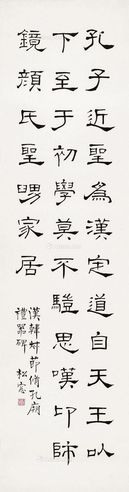 孔子近聖為漢定道自天王以
下至于初學莫不驗思嘆卬師
鏡顏氏聖舅家居
漢韓勑節脩孔廟
禮器碑 松窗